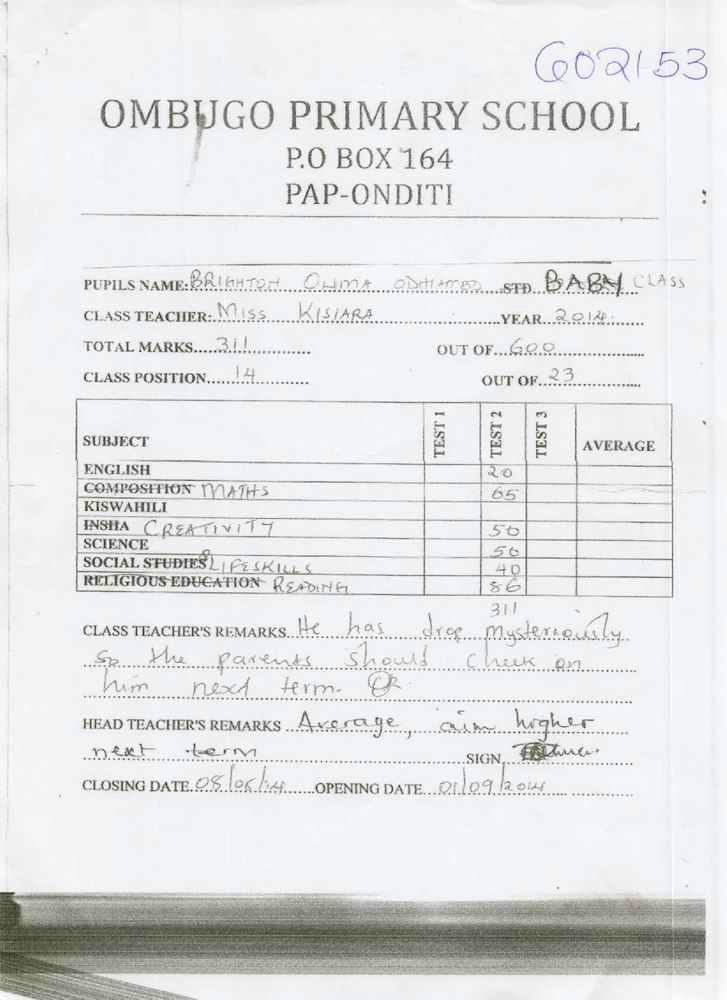 602153
OMBUGO PRIMARY SCHOOL
P.O BOX 164
PAP-ONDITI
PUPILS NAME: BRIGHTON OUMA ODHIAMBO STD. BABY CLASS
CLASS TEACHER: Miss KISIARA YEAR 2014
TOTAL MARKS 311 OUT OF 600
CLASS POSITION 14 OUT OF 23
SUBJECT TEST 1 TEST 2 TEST 3 AVERAGE
ENGLISH 20
COMPOSITION MATHS 65
KISWAHILI
INSHA CREATIVITY 50
SCIENCE 50
SOCIAL STUDIES LIFESKILLS 40
RELIGIOUS EDUCATION READING 86
311
CLASS TEACHER'S REMARKS He has drop mysteriously
so the parents should check on
him next term.
HEAD TEACHER'S REMARKS Average, aim higher
next term SIGN
CLOSING DATE 08/08/14 OPENING DATE 01/09/2014